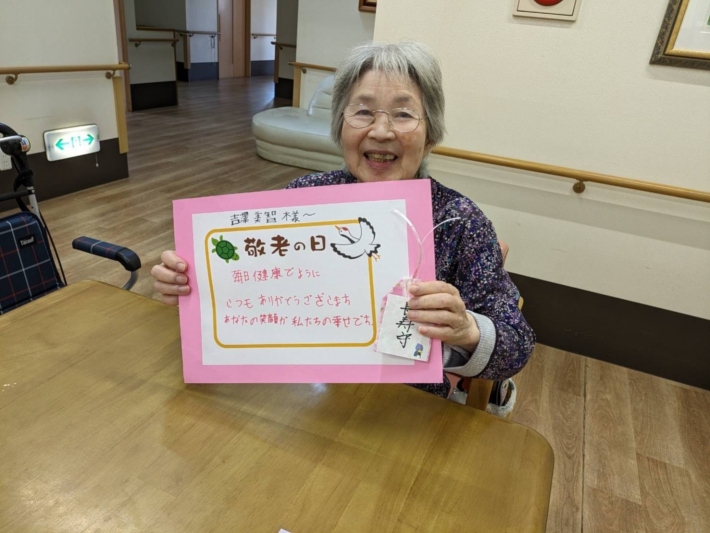 吉澤 美智 様～
敬老の日
毎日 健康でように
いつも ありがとうございます
あなたの 笑顔が 私たちの 幸せです。
長寿守